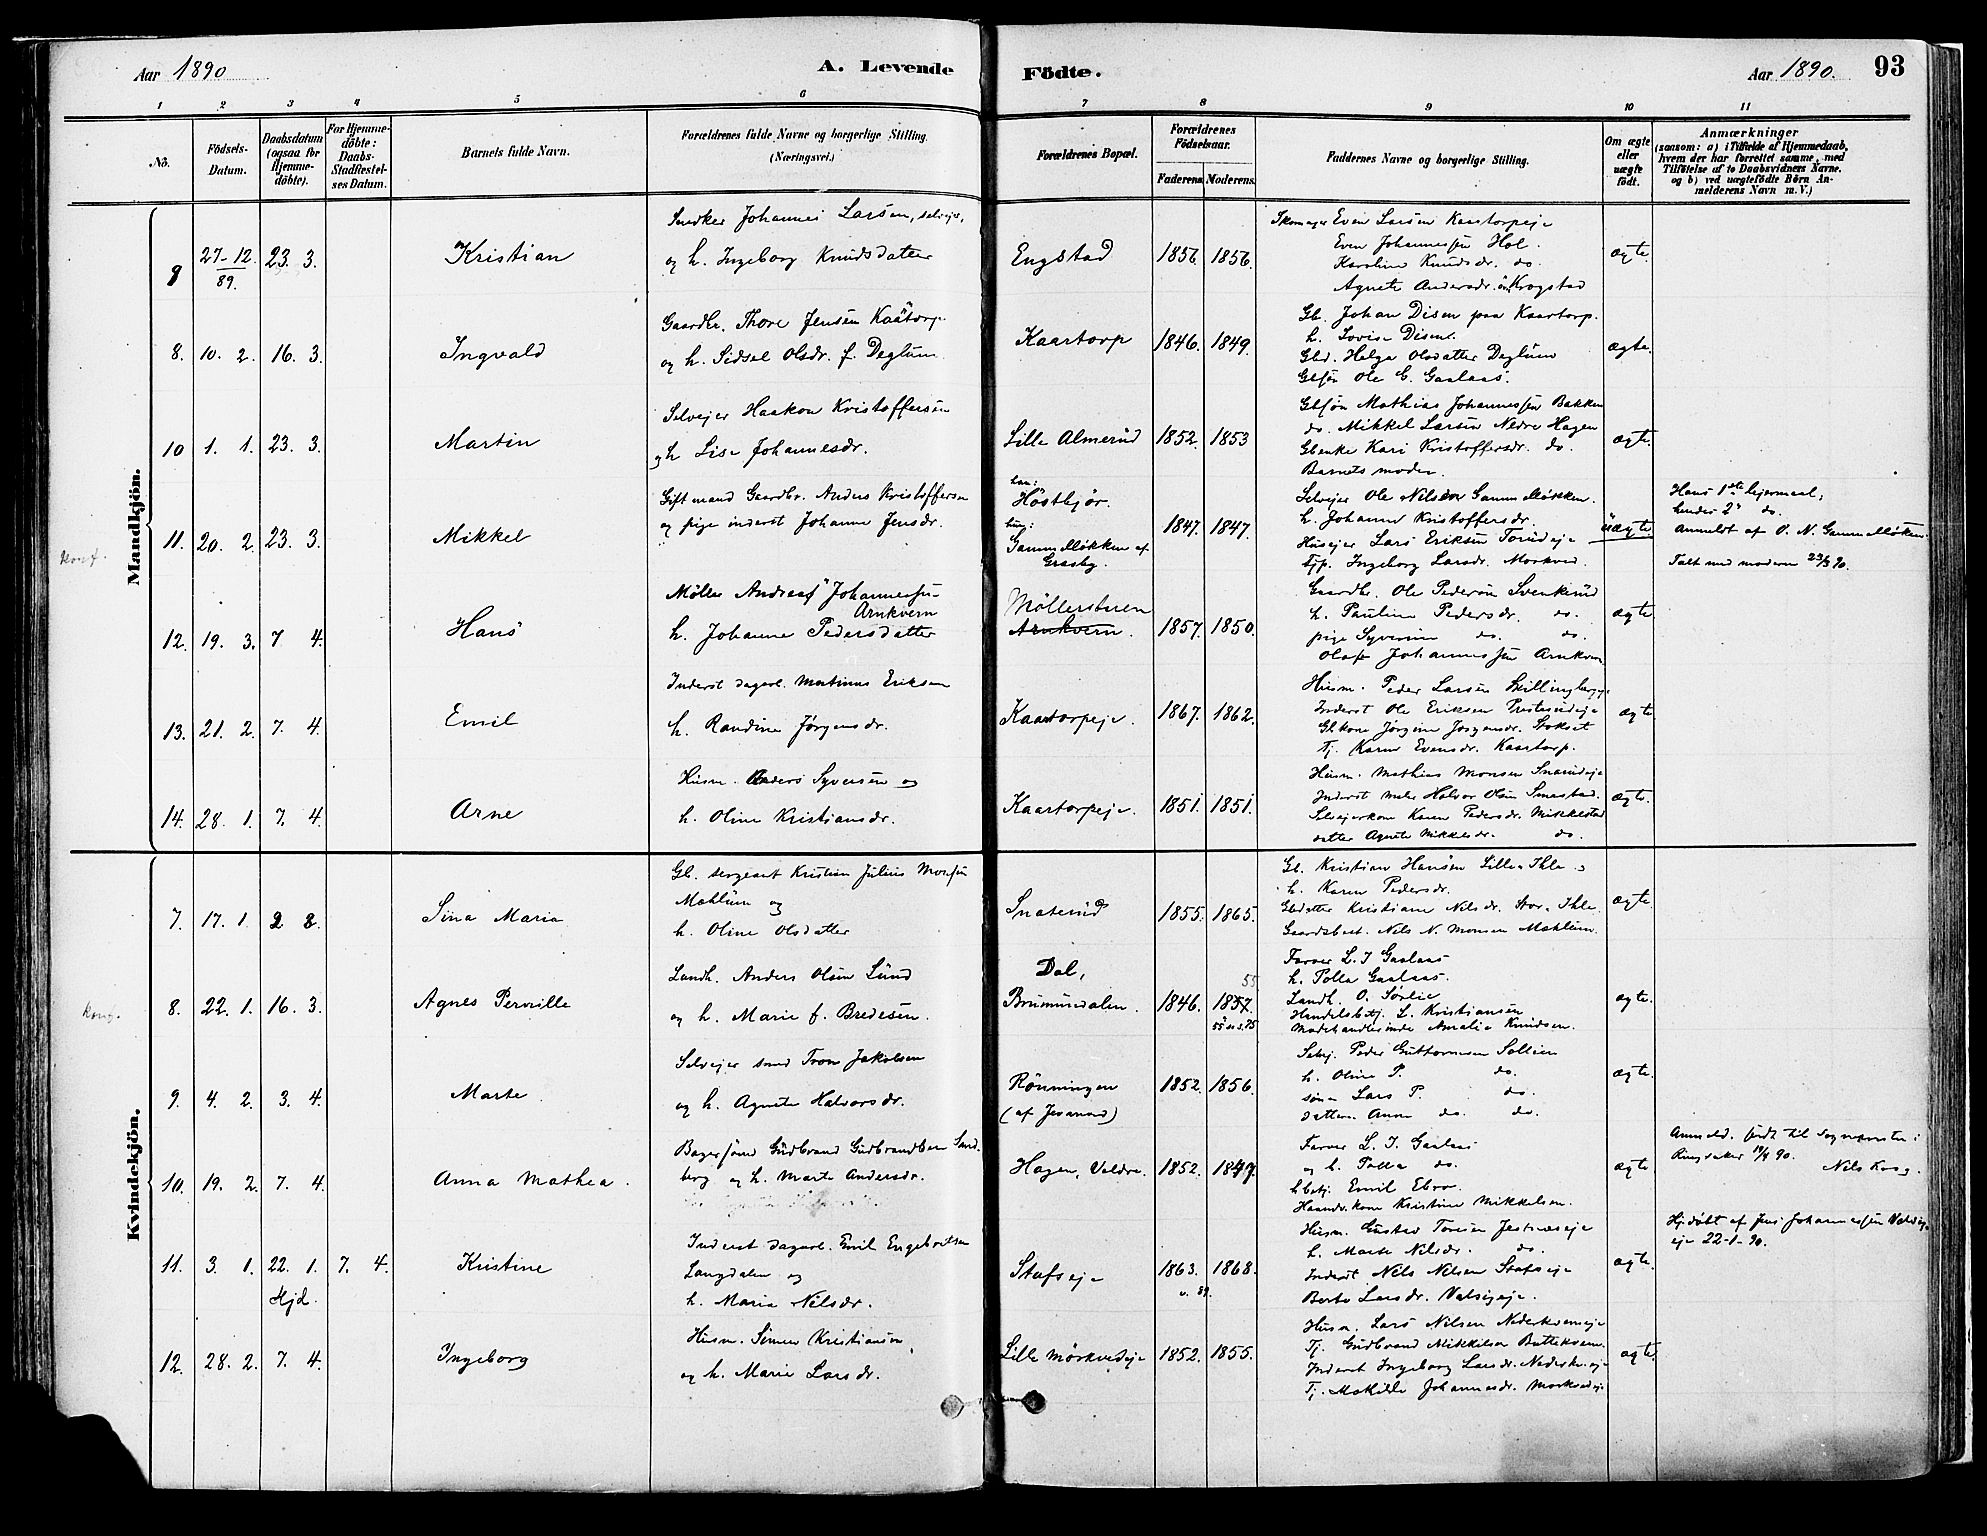 Aar 1890
A. Levende
Födte.
Aar 1890.
93
1 2 3 4 5 6 7 8 9 10 11
No.
Födsels-Datum.
Daabsdatum (ogsaa for Hjemmedöbte).
For Hjemmedöbte: Daabs-Stadfæstelses Datum.
Barnets fulde Navn.
Forældrenes fulde Navne og borgerlige Stilling.
(Næringsvei.)
Forældrenes Bopæl.
Forældrenes Födselsaar.
Faderens. Moderens.
Faddernes Navne og borgerlige Stilling.
Om ægte eller uægte födt.
Anmærkninger
(saasom: a) i Tilfælde af Hjemmedaab,
hvem der har forrettet samme, med
Tilföielse af to Daabsvidners Navne.
og b) ved uægtefödte Börn Anmelderens Navn m. V.)
Mandkjön.
9 27-12. 89. 23. 3. Kristian
Snedker Johannes Larsen, selvejer,
og h. Ingeborg Knudsdatter
Engstad 1856. 1856.
Skomager Even Larsen Kaatorpeje
Even Johannessen Hol.
Karoline Knudsdr. do.
Agnete Andersdr. Krogstad
ægte.
8. 10. 2. 16. 3. Ingvald
Gaardbr. Thore Jensen Kaatorp
og h. Sidsel Olsdr. f. Deglum
Kaartorp 1846. 1849.
Gb. Johan Disen paa Kaartorp.
h. Lovise Disen.
Gbd. Helga Olsdatter Deglum
Gbsøn Ole E. Gaalaas.
ægte.
10 1. 1. 23. 3. Martin
Selvejer Haakon Kristoffersen
og h Lise Johannesdr.
Lille Almerud 1852. 1853
Gbsøn Mathias Johannessen Bakken
do. Mikkel Larsen Nedre Hagen
Gbenke Kari Kristoffersdr. do.
Barnets moder.
ægte.
konf.
11. 20. 2. 23. 3. Mikkel
Gift mand Gaardbr. Anders Kristoffersen
og pige inderst Johanne Jensdr.
han:
Höstbjör.
hun:
Gammelløkken af
Græsby.
1847. 1847.
Selvejer Ole Nilsen Gammelløkken.
h. Johanne Kristoffersdr.
Husejer Lars Eriksen Torudeje
Tjp. Ingeborg Larsdr. Morkved.
uægte
Hans 1ste lejermaal,
hendes 2det do.
Anmeldt af O. N. Gammelløkken
Talt med moderen 23/3 90.
12. 19. 3. 7 4. Hans
Møller Andreas Johannessen
Arnkvern
h. Johanne Pedersdatter
Møllerstuen
Arnkvern.
1857. 1850.
Gaardbr. Ole Pedersen Svenkerud
h. Pauline Pedersdr. do.
pige Syverine do. do.
Olaf Johannessen Arnkvern
ægte
13. 21. 2. 7. 4. Emil
Inderst dagarb. Martinus Eriksen
h. Randine Jørgensdr.
Kaartorpeje. 1867. 1862.
Husm. Peder Larsen Skillingberg
Inderst Ole Eriksen
Gbkone Jørgine Jørgensdr. Stokset
Tj. Karen Evensdr. Kaartorp.
ægte
14. 28. 1. 7. 4. Arne
Husm. Anders Syversen og
h. Oline Kristiansdr.
Kaartorpeje. 1851. 1851.
Husm. Mathias Monsen Snarudeje
Inderst maler Halvor Olsen Smestad.
Selvejerkone Karen Pedersdr. Mikkelstad
datter Agnete Mikkelsdr. do.
ægte.
Kvindekjön.
7. 17. 1. 2 3. Sina Maria
Gb. sergeant Kristian Julius Monsen
Mæhlum og
h. Oline Olsdatter
Snaterud 1855. 1865.
Gb. Kristian Hansen Lille-Ihle.
h. Karen Pedersdr.
Gbdatter Kristiane Nilsdr. Stor-Ihle.
Gaardsbest. Nils N. Monsen Mæhlum.
ægte.
konf.
8. 22. 1. 16. 3. Agnes Pernille
Landh. Anders Olsen Lund
og h. Marie f. Bredesen.
Dal,
Brumunddalen. 1846. 1857.
55
Farver L. J Gaalaas
h. Polla Gaalaas.
Landh. O. Sørlie
Handelsbetj. L. Kristiansen
Modehandlerinde Amalie Knudsen.
ægte.
9. 4. 2. 3. 4. Marte
Selvejer smed Tron Jakobsen
og h. Agnete Halvorsdr.
Rönningen
(af Jevanord)
1852. 1856.
Selvej. Peder Guttormsen Sollien
h. Oline P. do.
søn Lars P. do.
datteren Anne do. do.
ægte.
10. 19. 2. 7. 4. Anna Mathea.
Bagersvend Gudbrand Gudbrandsen Sandberg og h. Marte Andersdr.
Hagen, Veldre. 1852. 1847.
Farver L. J. Gaalaas
og h. Polla do.
hbetj. Emil Ebro.
Haandv.kone Kristine Mikkelsen.
ægte
Anmeld. sendt til Sognepresten i
Ringsaker 19/4 90.
11. 3. 1. 22. 1. Hjd. 7. 4. Kristine
Inderst dagarb. Emil Engebretsen
Langdalen og
h. Maria Nilsdr.
Stafseje 1863. 1868.
Husm. Gustav Toresen Jestnæseje
h. Marte Nilsdr. do.
Inderst Nils Nilsen Stafseje
Berte Larsdr. Valsigeje.
ægte.
Hj.døbt af Jens Johannessen
eje 22-1-90.
12. 28. 2. 7. 4. Ingeborg
Husm. Simen Kristiansen
og h. Marie Larsdr.
Lille Mörkvedeje 1852. 1855.
Husm. Lars Nilsen Nederkverneje
Tj. Gudbrand Mikkelsen Buttekvern.
Inderst Ingeborg Larsdr. Nederkv.eje
Tj. Mathilde Johannesdr. Morkvedeje
ægte.